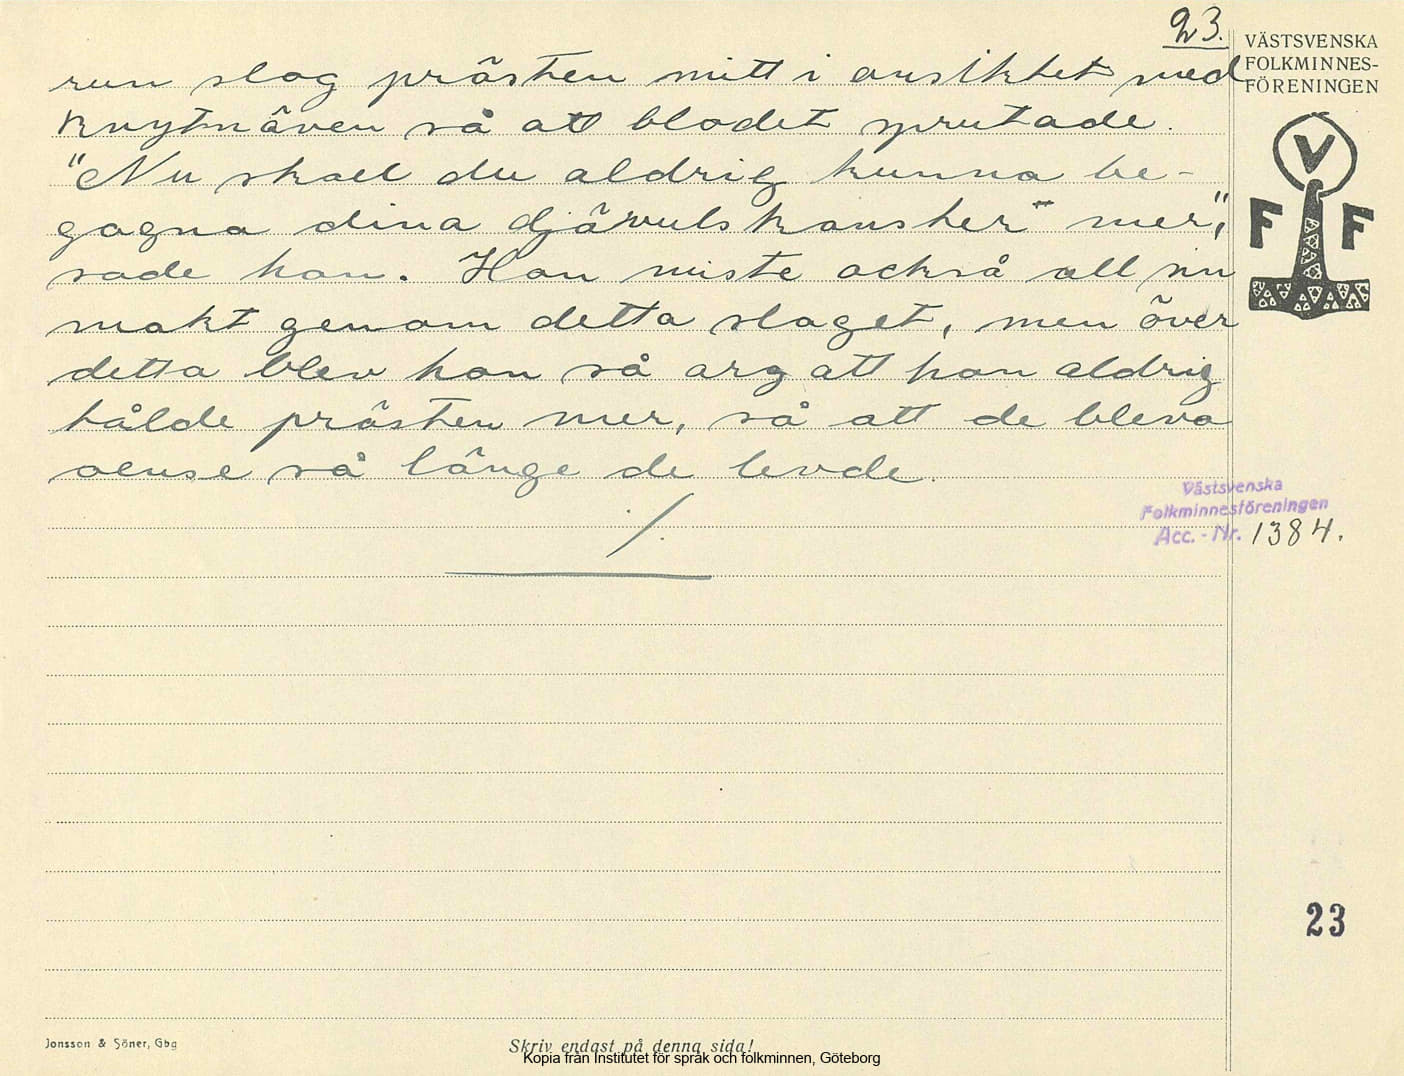 23.
VÄSTSVENSKA
FOLKMINNES-
FÖRENINGEN
V
F F
run slog prästen mitt i ansiktet med
knytnäven så att blodet sprutade.
"Nu skall du aldrig kunna be-
gagna dina djävulskonster mer",
sade han. Han miste också all sin
makt genom detta slaget, men över
detta blev han så arg att han aldrig
tålde prästen mer, så att de bleva
oense så länge de levde.
./.
Västsvenska
Folkminnesföreningen
Acc. - Nr. 1384.
23
Jonsson & Söner, Gbg
Skriv endast på denna sida!
Kopia från Institutet för språk och folkminnen, Göteborg